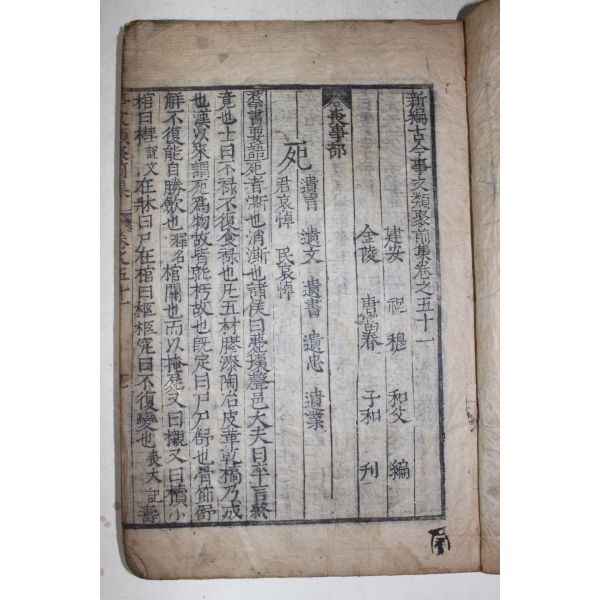 新編古今事文類聚前集卷之五十一
建安 祝穆 和父 編
金陵 唐富春 子和 刊
喪事部
死 遺言 遺文 遺書 遺忠 遺業
君哀悼 民哀悼
羣書要語死者澌也消澌也諸侯曰薨壞聲邑大夫曰卒言終
竟也士曰不禄不復食禄也凡五材膠漆陶冶皮革乾槁乃成
也漢以來謂死爲物故皆就朽故也既定曰尸尸舒也骨節舒
解不復能自勝斂也釋名棺關也而以掩屍又曰櫬又曰櫝小
棺曰槥說文在牀曰尸在棺曰柩柩究曰不復變也喪大記壽
事文類聚前集 卷之五十一